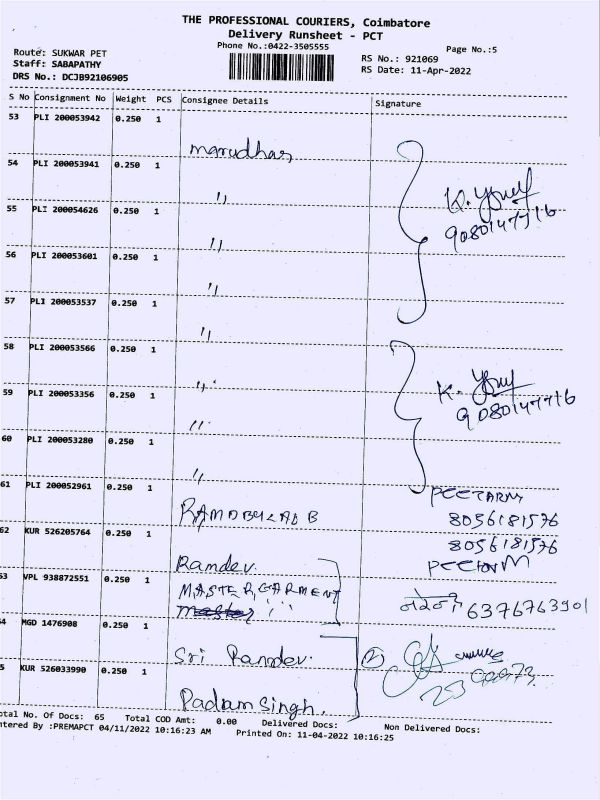 THE PROFESSIONAL COURIERS, Coimbatore
Delivery Runsheet - PCT
Phone No.:0422-3505555
Page No.:5
Route: SUKWAR PET
Staff: SABAPATHY
DRS No.: DCJB92106905
RS No.: 921069
RS Date: 11-Apr-2022
S No Consignment No Weight PCS Consignee Details Signature
53 PLI 200053942 0.250 1
marudhar
54 PLI 200053941 0.250 1
,,
K.
9080147716
55 PLI 200054626 0.250 1
,,
56 PLI 200053601 0.250 1
,,
57 PLI 200053537 0.250 1
,,
58 PLI 200053566 0.250 1
,,
59 PLI 200053356 0.250 1
,,
K.
9080147716
60 PLI 200053280 0.250 1
,,
61 PLI 200052961 0.250 1
8056181576
62 KUR 526205764 0.250 1
Ramdev.
8056181576
63 VPL 938872551 0.250 1
MASTER GARMENT
6376763901
64 MGD 1476908 0.250 1
Sri Ramdev.
65 KUR 526033990 0.250 1
Padam Singh.
otal No. Of Docs: 65 Total COD Amt: 0.00 Delivered Docs: Non Delivered Docs:
ntered By :PREMAPCT 04/11/2022 10:16:23 AM Printed On: 11-04-2022 10:16:25